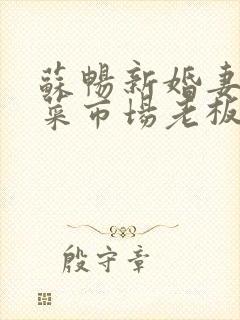 蘇暢新婚妻
菜市場老板
殷守章